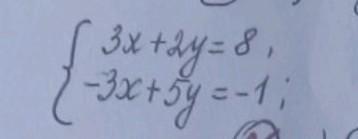 3x+2y=8,
-3x+5y=-1;